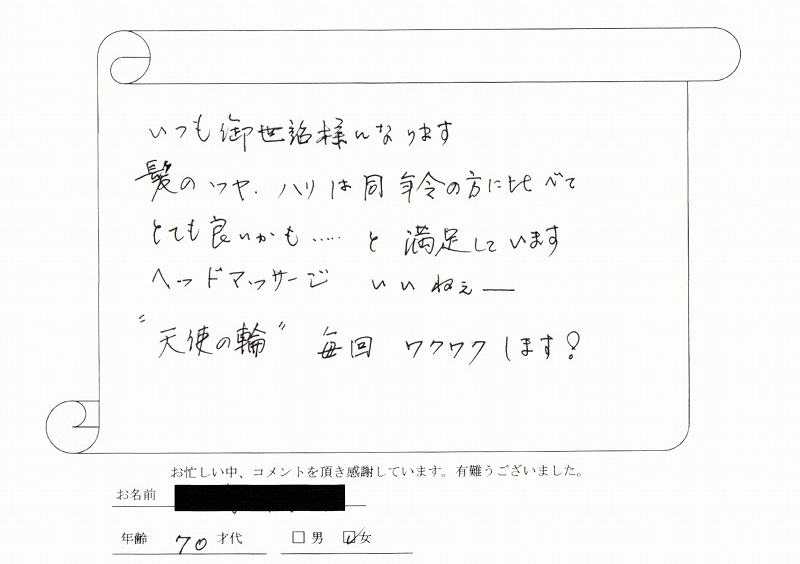 いつも御世話様になります
髪のツヤ.ハリは同年令の方に比べて
とても良いかも…‥と満足しています
ヘッドマッサージ いいねぇー
"天使の輪" 毎回 ワクワクします!
お忙しい中、コメントを頂き感謝しています。有難うございました。
お名前
年齢 70 才代 □ 男 ☑ 女